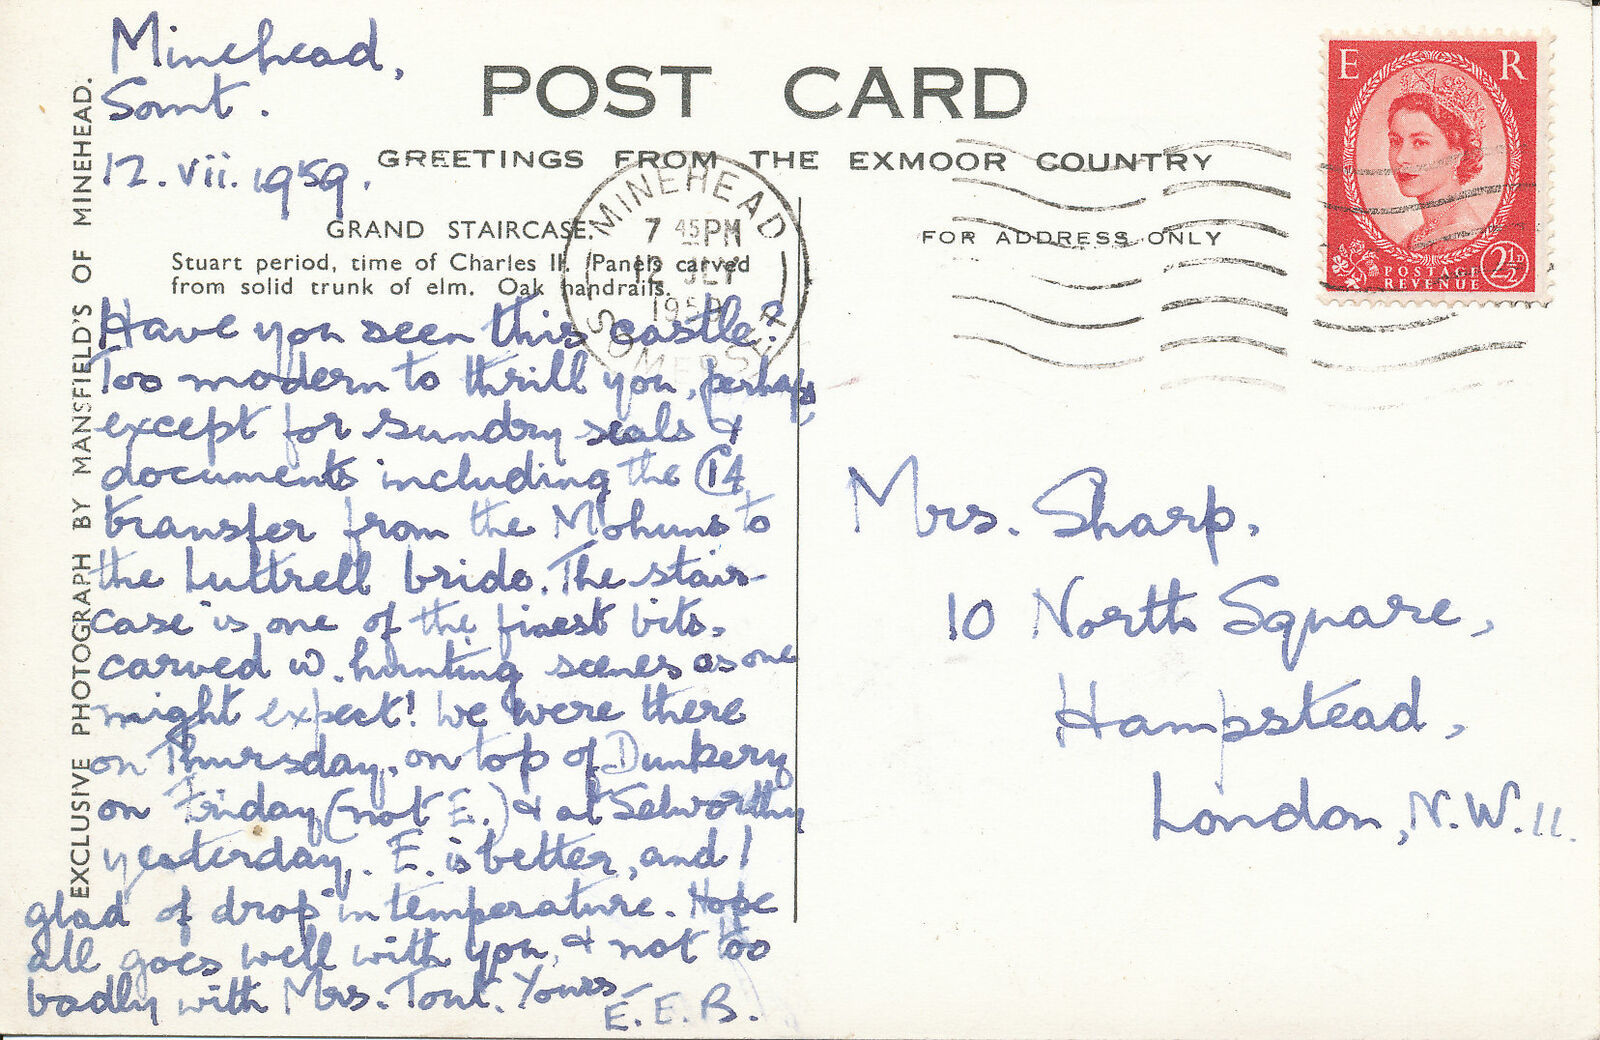 Minehead,
Somt.
12. vii. 1959.
POST CARD
GREETINGS FROM THE EXMOOR COUNTRY
GRAND STAIRCASE.
Stuart period, time of Charles II. Panels carved
from solid trunk of elm. Oak handrails.
FOR ADDRESS ONLY
EXCLUSIVE PHOTOGRAPH BY MANSFIELD'S OF MINEHEAD.
MINEHEAD
7 45 PM
12 JLY
1959
SOMERSET
E R
POSTAGE
REVENUE
2½D
Have you seen this castle?
Too modern to thrill you, perhaps,
except for sundry seals &
documents including the C14
transfer from the Mohuns to
the Luttrell bride. The stair-
case is one of the finest bits,
carved w. hunting scenes as one
might expect! We were there
on Thursday, on top of Dunkery
on Friday (not E.) & at Selworthy
yesterday. E. is better, and I
glad of drop in temperature. Hope
all goes well with you, & not too
badly with Mrs. Tout. Yours
E. E. B.
Mrs. Sharp,
10 North Square,
Hampstead,
London, N.W. 11.